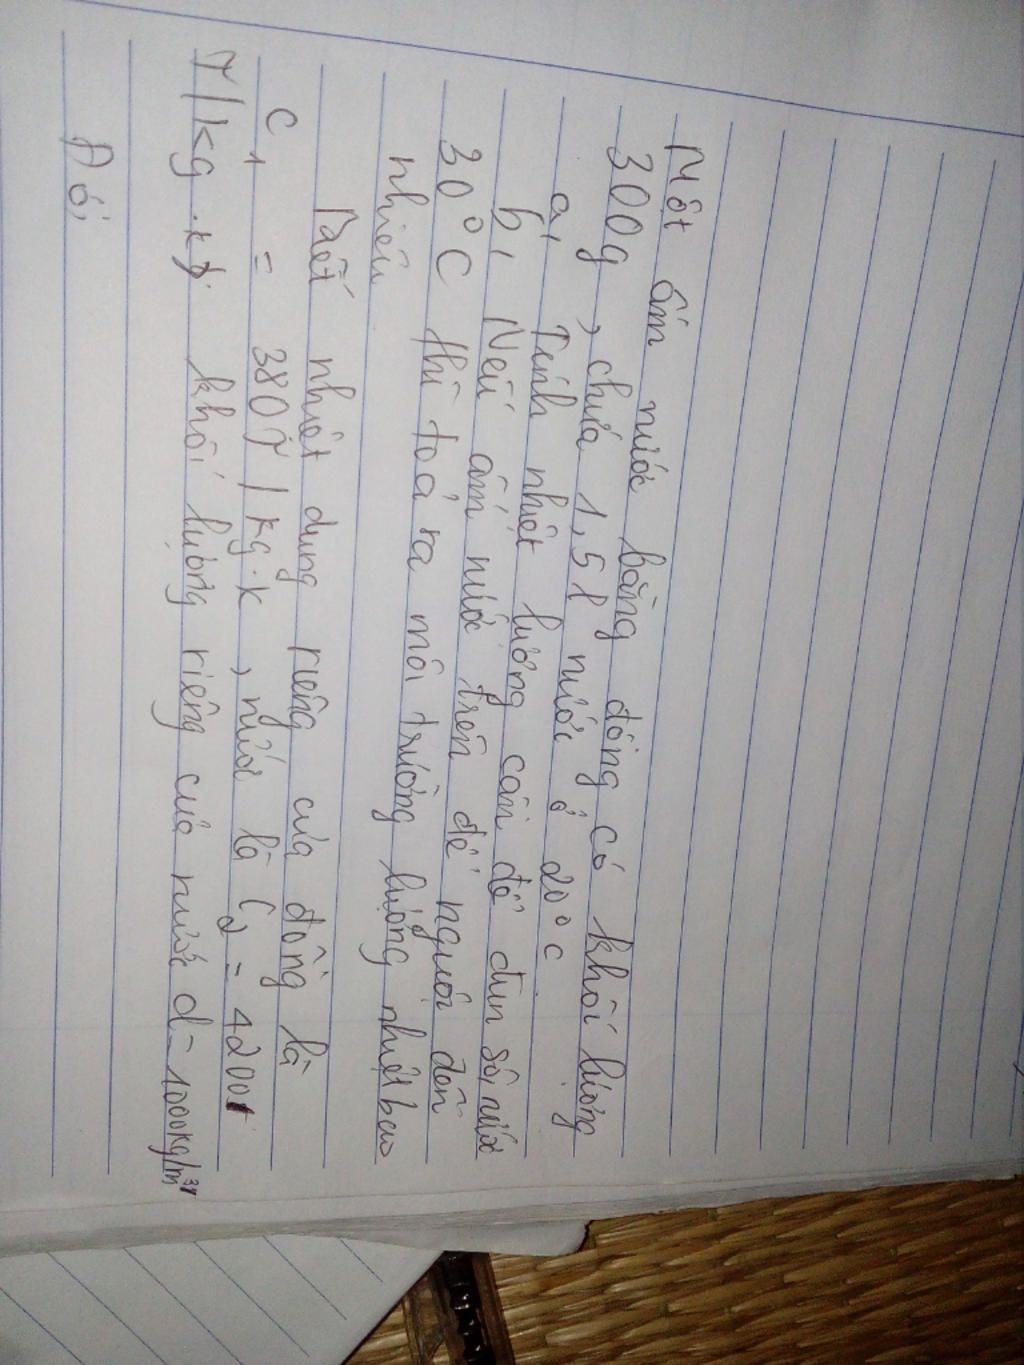 Một ấm nước bằng đồng có khối lượng
300g, chứa 1,5l nước ở 20°C.
a, Tính nhiệt lượng cần để đun sôi nước
b, Nếu ấm nước trên để nguội đến
30°C thì toả ra môi trường lượng nhiệt bao
nhiêu
Biết nhiệt dung riêng của đồng là
C1 = 380J/kg.k, nước là C2 = 4200
J/kg.k. khối lượng riêng của nước d=1000kg/m3